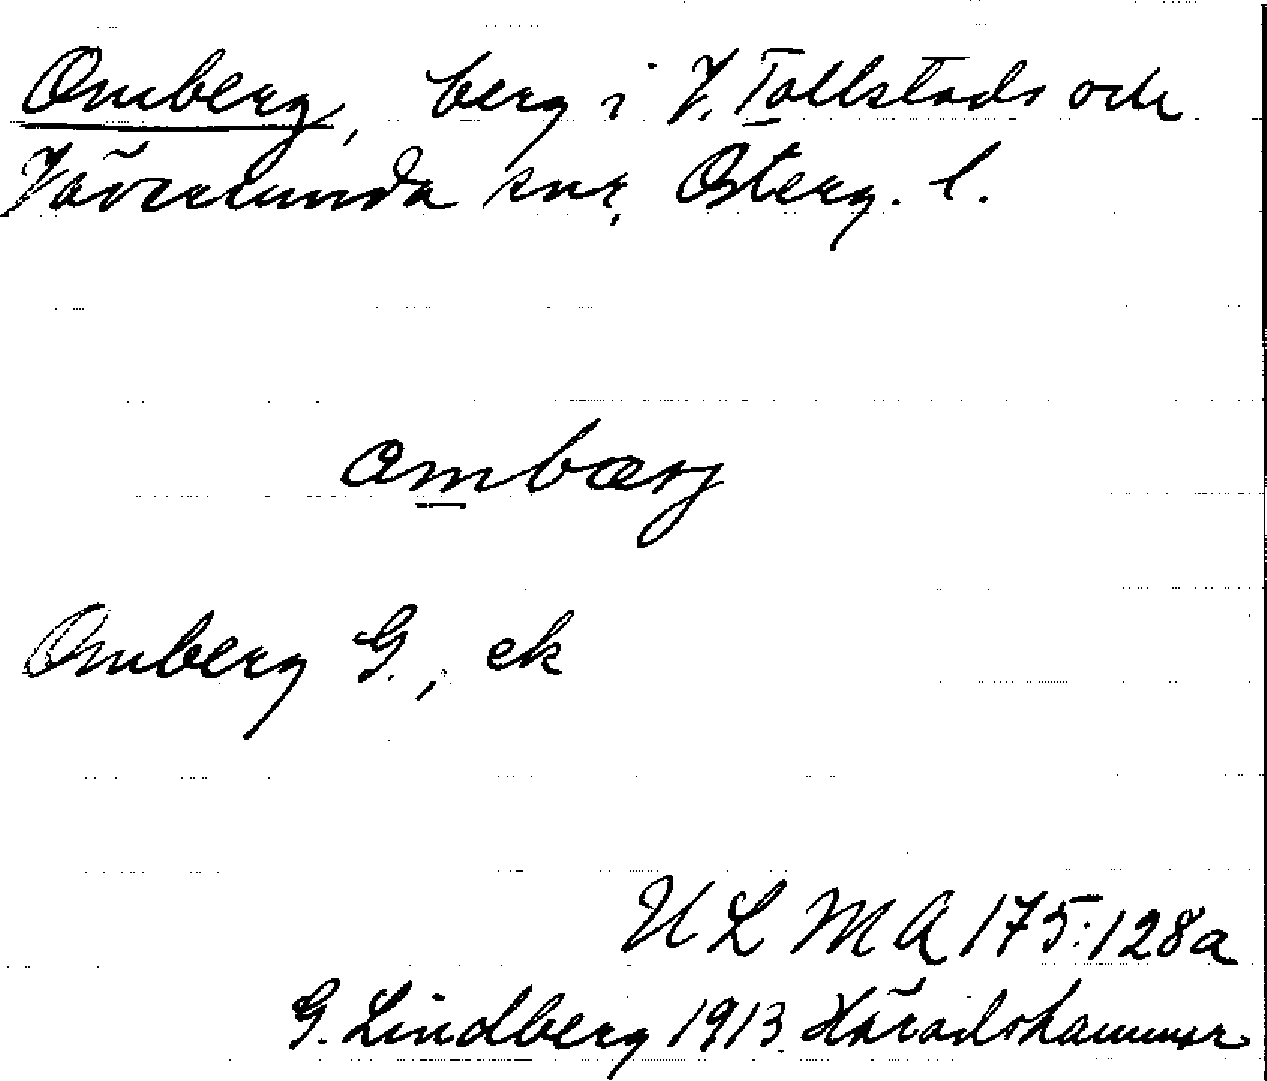 Omberg, berg i V. Tollstads och
Väversunda snr, Österg. l.
ombærj
Omberg G., ek
ULMA 175:128a
G. Lindberg 1913 Häradshammar